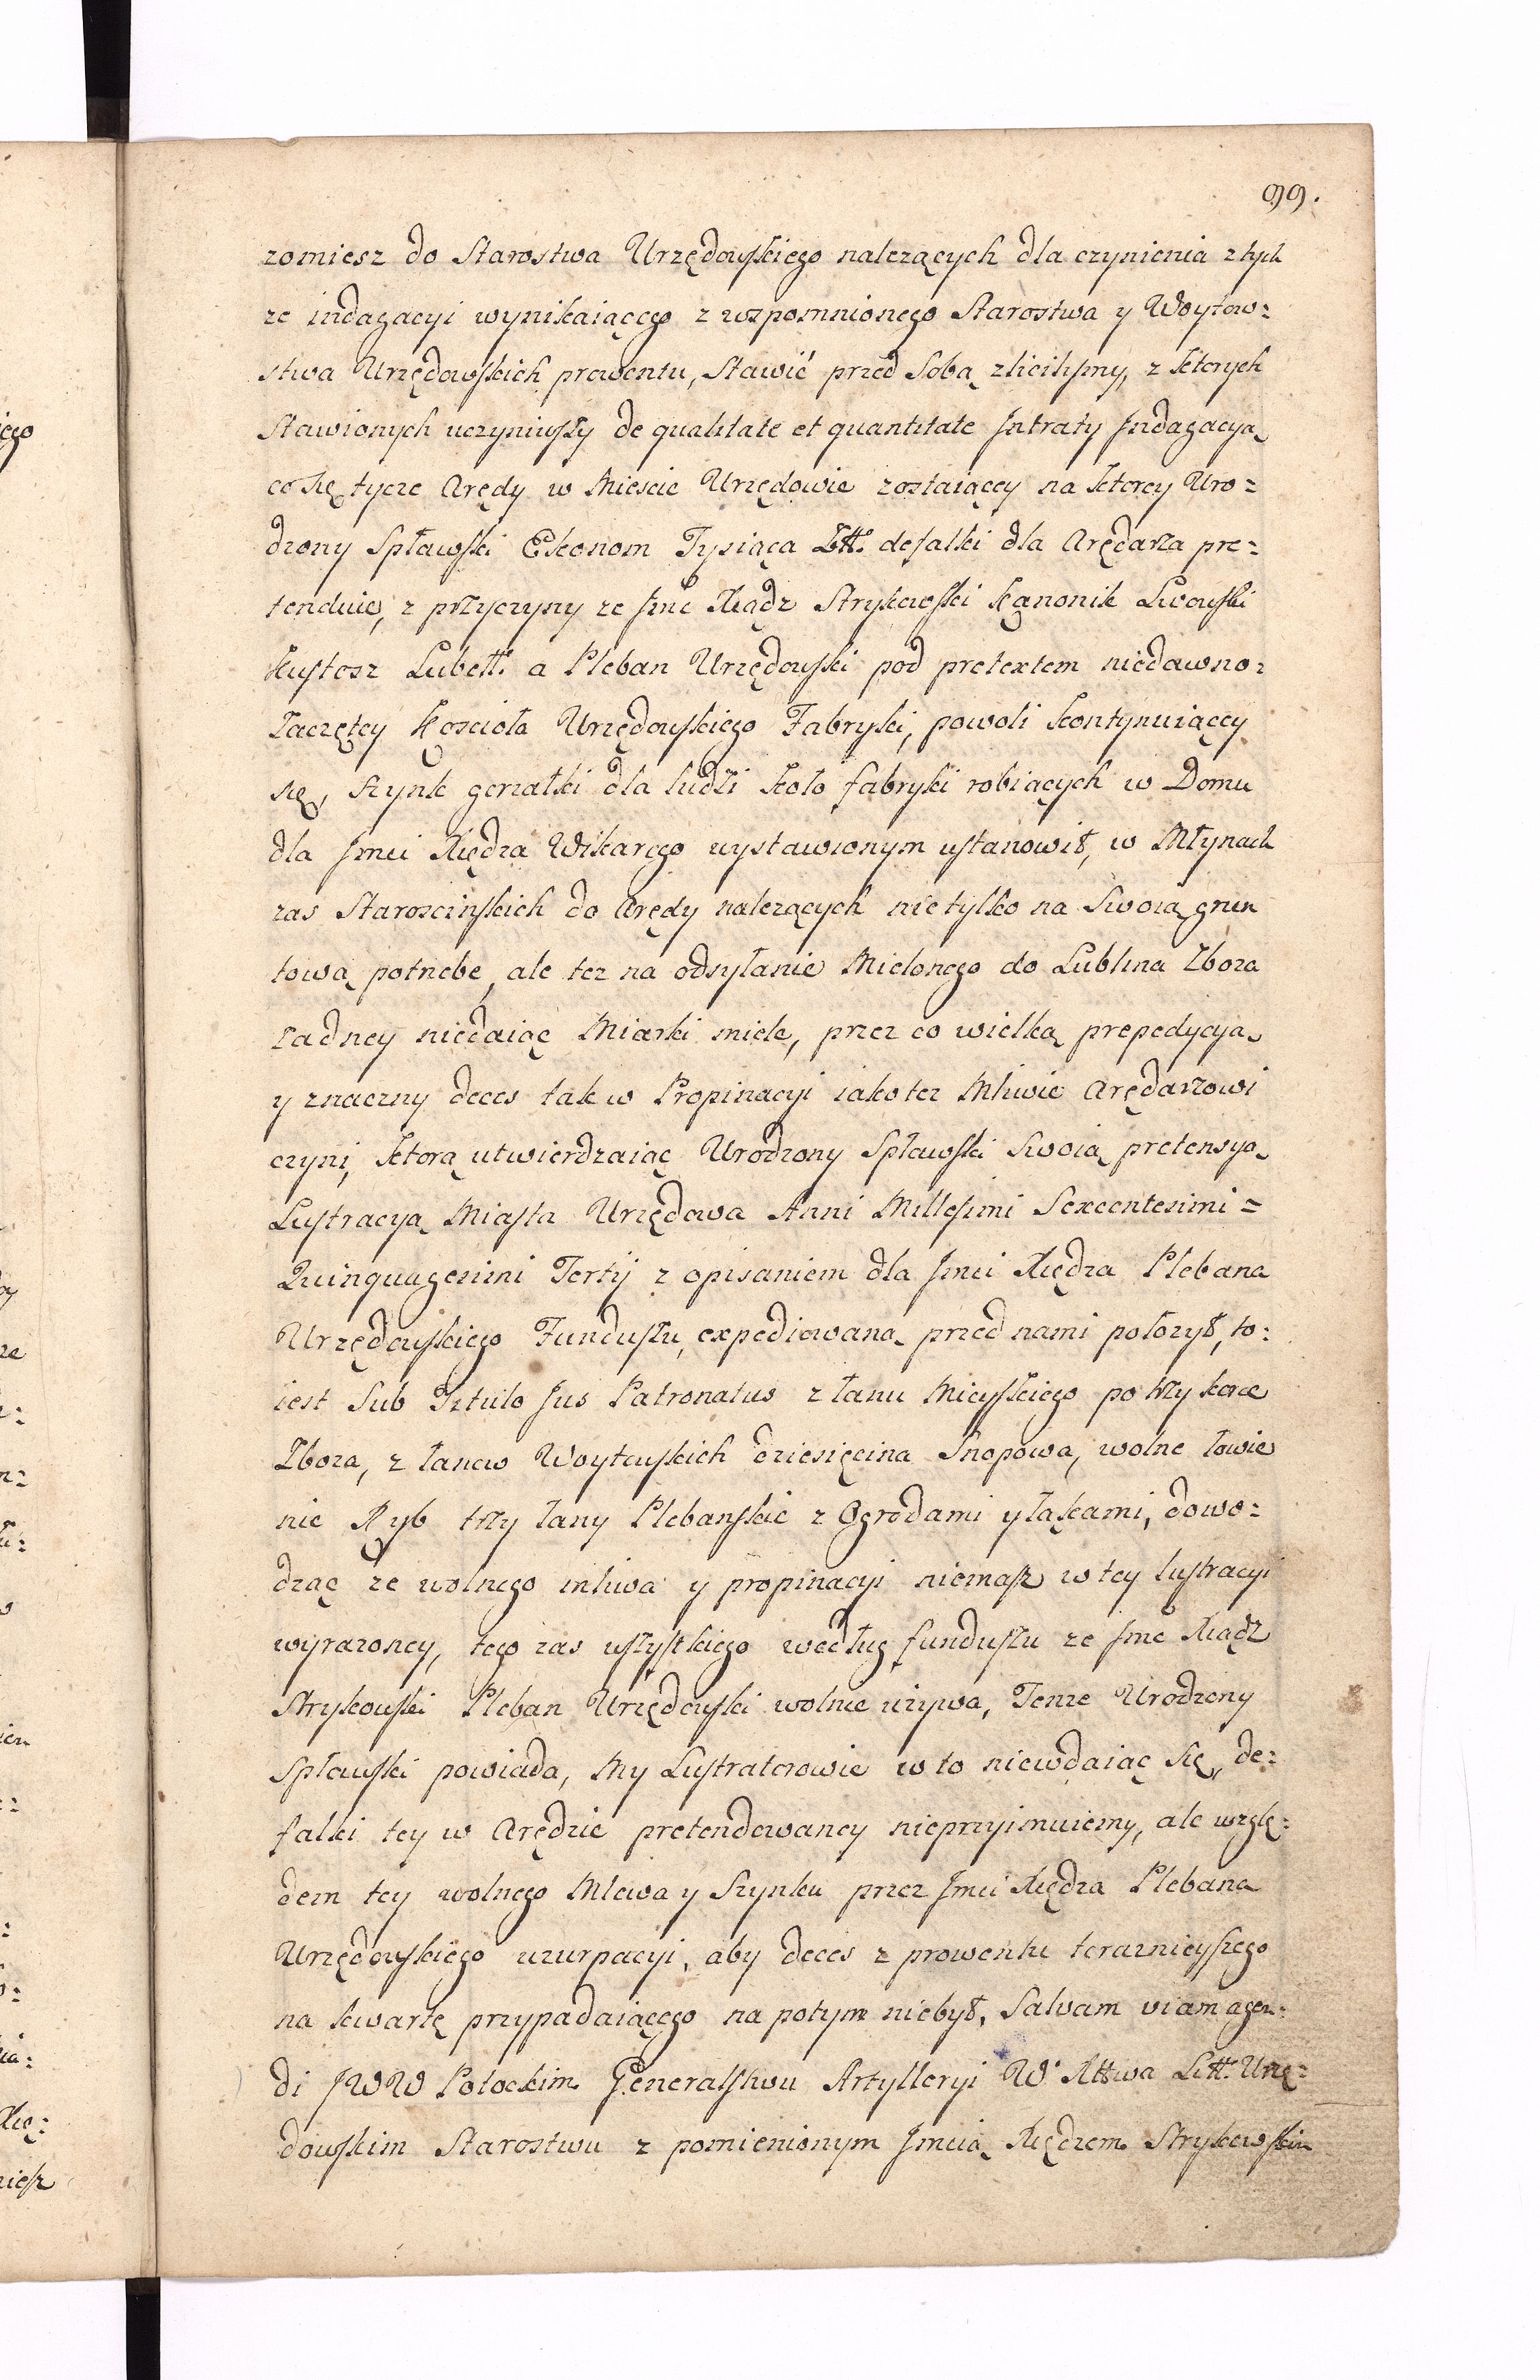 99.
zomiesz do Starostwa Urzędowskiego nalezących dla czynienia z tych
ze indagacyi wynikaiącego z wzpomnionego Starostwa y Woytow:
stwa Urzędowskich prowentu, Stawić przed Sobą zlicilismy, z ktorych
Stawionych uczyniwszy de qualitate et quantitate Intraty Indagacyą
co się tycze Arędy w Miescie Urzędowie zostaiącey na ktorey Uro=
dzony Spławski Ekonom Tysiąca Złt. defalki dla Arędarza pre=
tenduie, z przyczyny ze Jmć Xiądz Strykowski Kanonik Lwowski
Kustosz Lubell: a Pleban Urzędowski pod pretextem niedawno:
Zaczętey Koscioła Urzędowskiego Fabryki, powoli kontynuiącey
się, Szynk gorzałki dla ludzi koło fabryki robiących w Domu
dla Jmci Xiędza Wikarego wystawionym ustanowił, w Młynach
zas Staroscinskich do Arędy nalezących nie tylko na Swoią grun
tową potrzebę, ale tez na odsyłanie Mielonego do Lublina Zboza
zadney niedaiąc Miarki miele, przez co wielką prepedycyą
y znaczny deces tak w Propinacyi iako tez Mliwie Arędarzowi
czyni, ktorą utwierdzaiąc Urodzony Spławski Swoią pretensyą
Lustracyą Miasta Urzędowa Anni Millesimi Sexcentesimi =
Quinquagesimi Tertij z opisaniem dla Jmci Xiędza Plebana
Urzędowskiego Funduszu, expediowaną przed nami położył, to:
iest Sub Tytulo Jus Patronatus z łanu Mieyskiego po trzy korce
Zboza, z łanow Woytowskich dziesięcina Snopowa, wolne łowie
nie Ryb trzy łany Plebanskie z Ogrodami y łąkami, dowo=
dząc ze wolnego mliwa y propinacyi niemasz w tey lustracyi
wyrazoney, tego zas wszystkiego według funduszu ze Jmć Xiądz
Strykowski Pleban Urzędowski wolnie uzywa, Tenze Urodzony
Spławski powiada, My Lustratorowie w to niewdaiąc Się, de=
falki tey w Arędzie pretendowaney nieprzyimuiemy, ale wzglę:
dem tey wolnego Mlewa y Szynku przez Jmci Xiędza Plebana
Urzędowskiego uzurpacyi, aby deces z prowentu teraznieyszego
na kwartę przypadaiącego na potym niebył, Salvam viam agen:
di JWW Potockim Generalstwu Artylleryi W. Xttwa Litt. Urzę=
dowskim Starostwu z pomienionym Jmcią Xiędzem Strykowskim